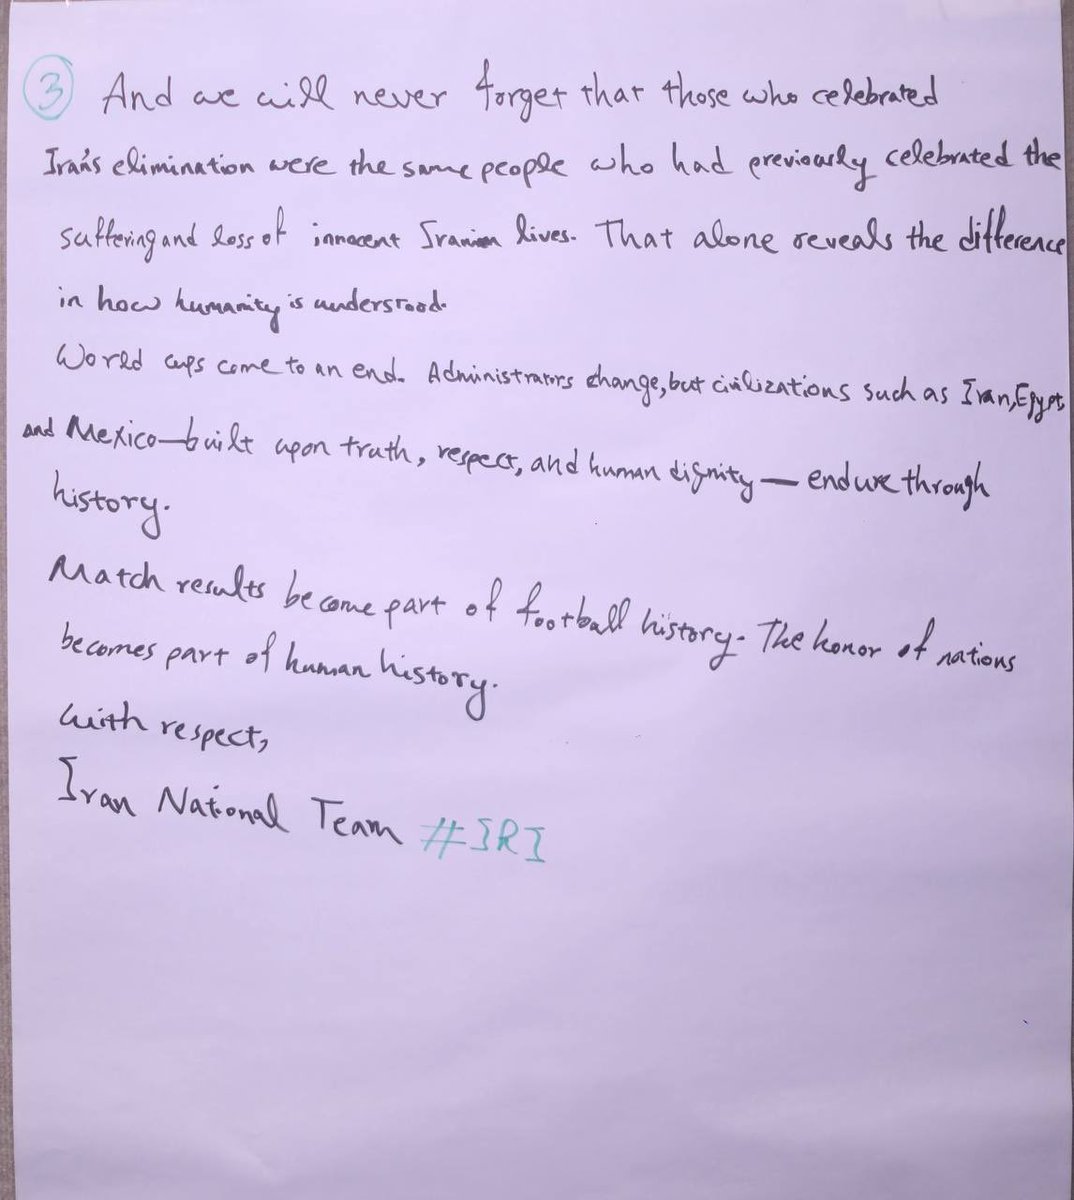 ③ And we will never forget that those who celebrated
Iran's elimination were the same people who had previously celebrated the
suffering and loss of innocent Iranian lives. That alone reveals the difference
in how humanity is understood.
World cups come to an end. Administrators change, but civilizations such as Iran, Egypt,
and Mexico—built upon truth, respect, and human dignity — endure through
history.
Match results become part of football history. The honor of nations
becomes part of human history.
With respect,
Iran National Team #IRI